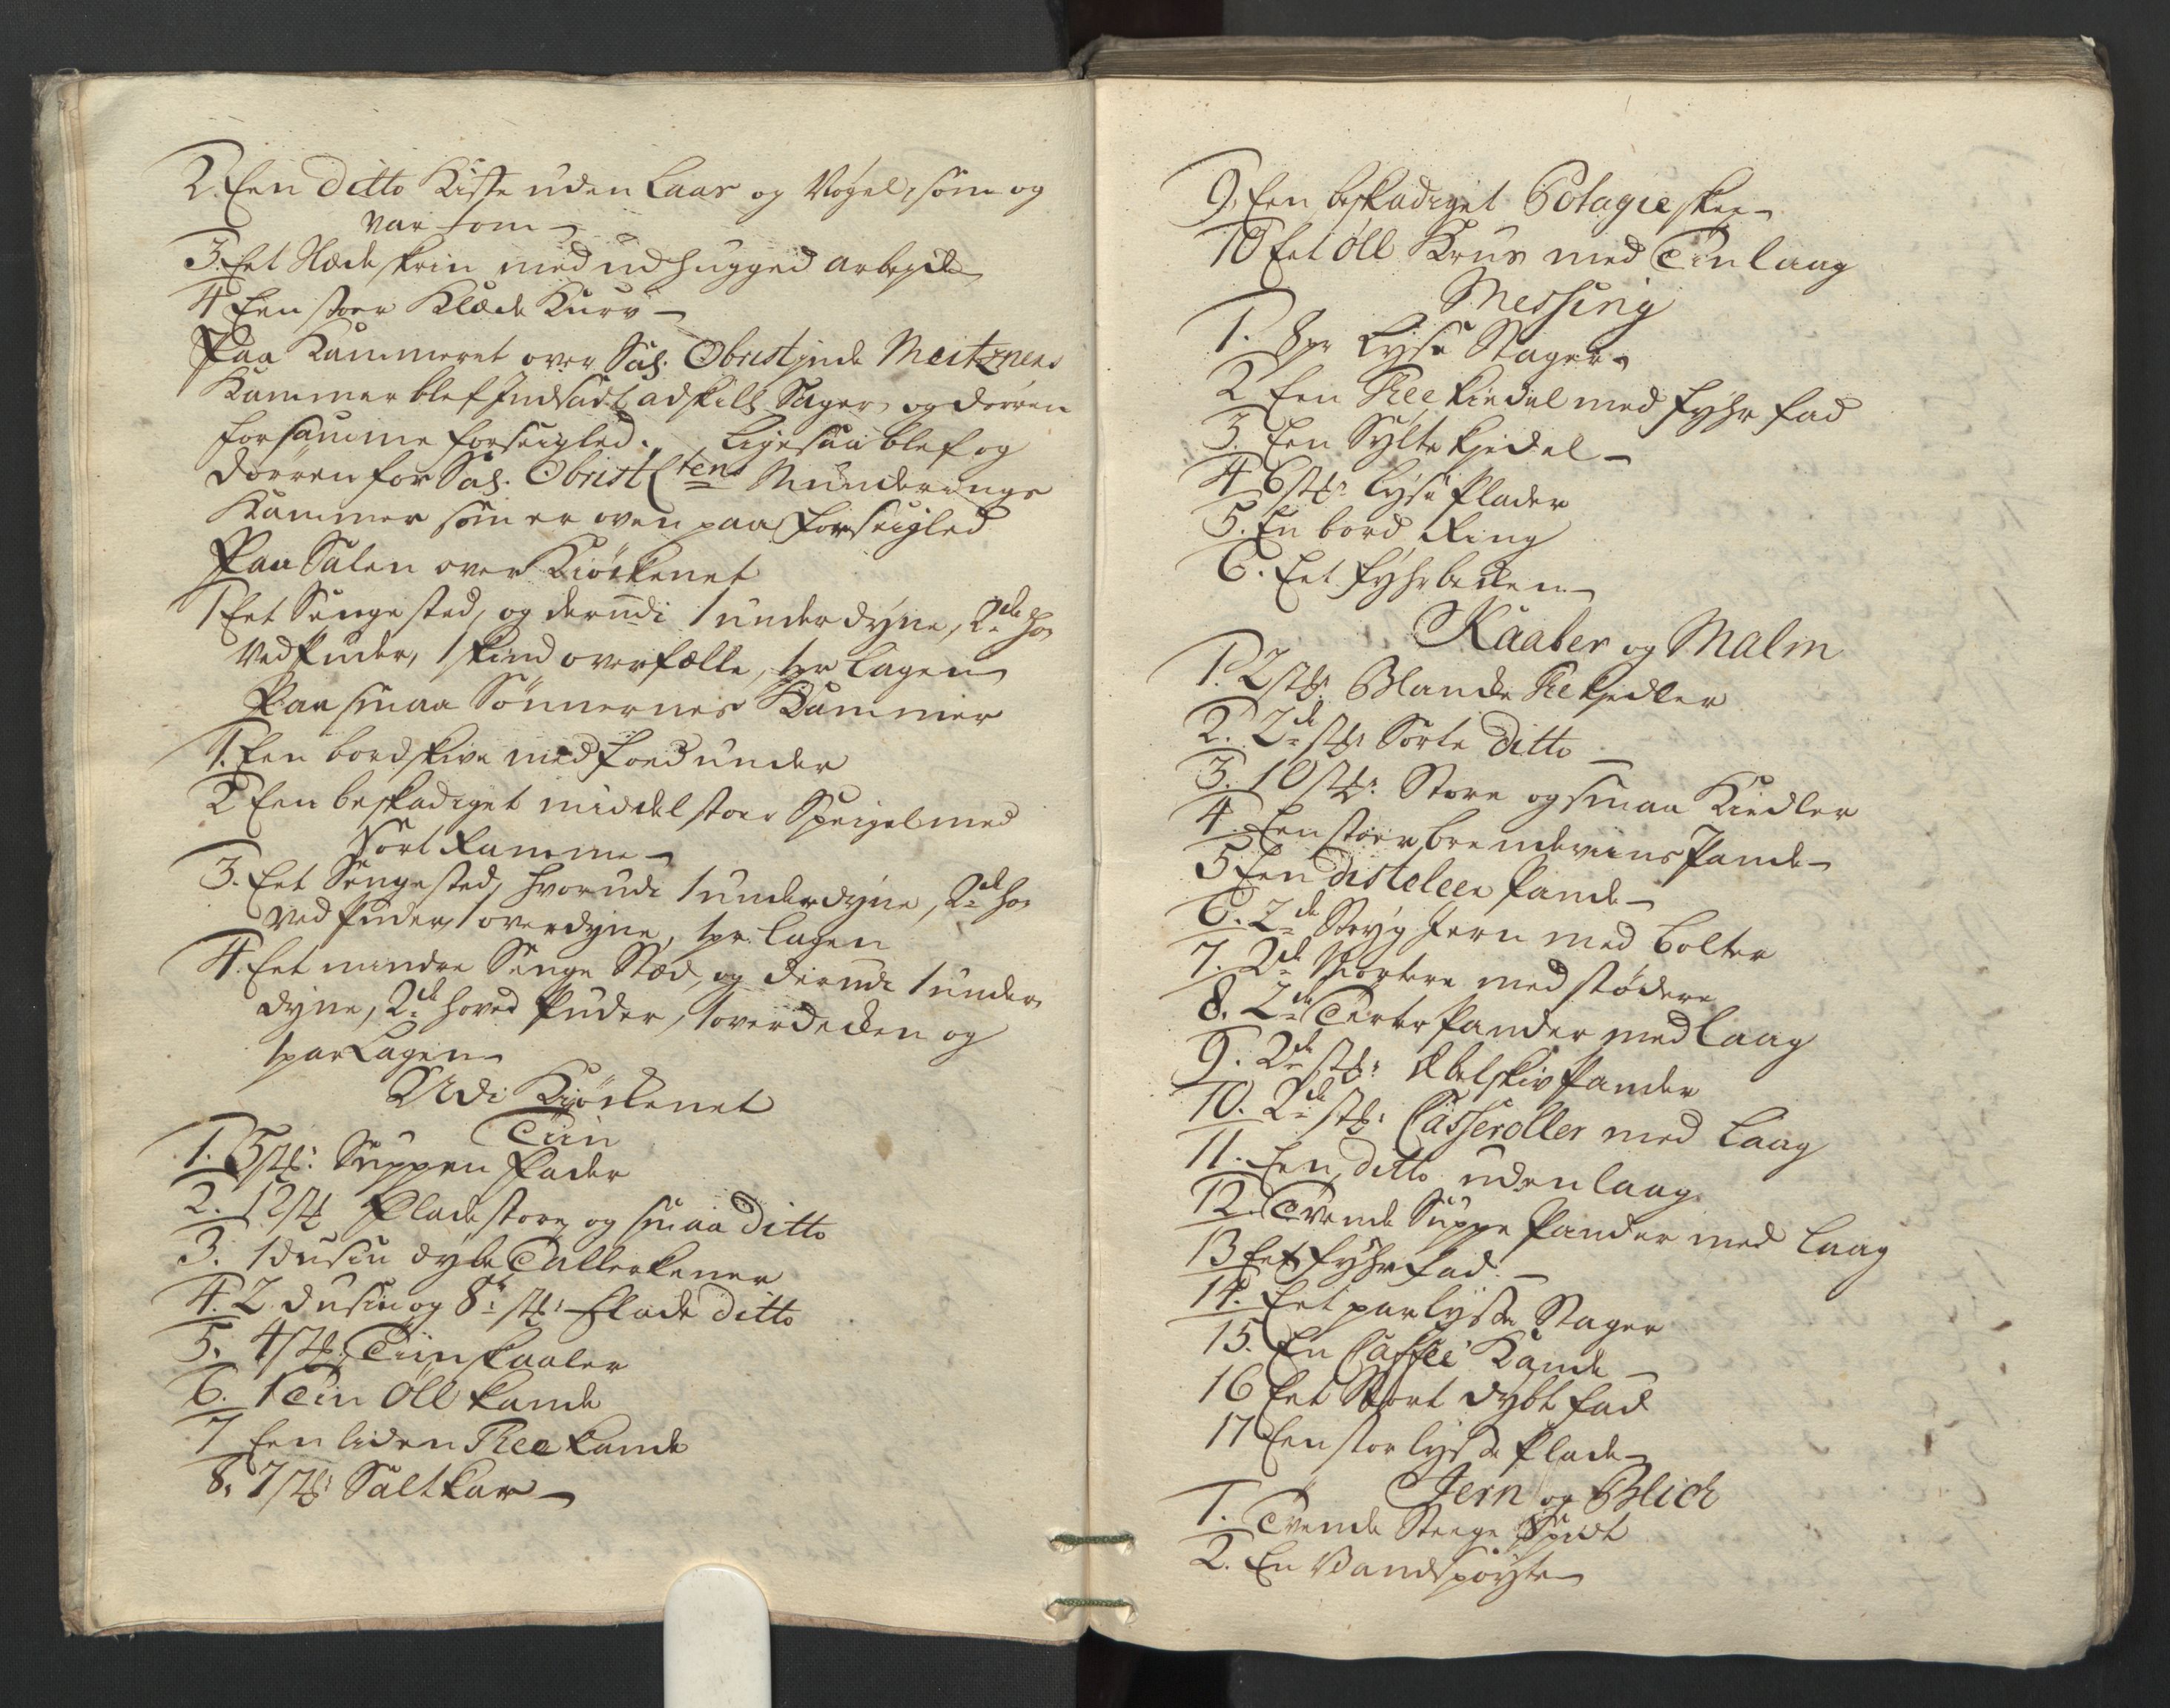 2. Een ditto Kiste uden Laas og Nøgel, som og
var tom
3. Eet Næde skrin med udhugged arbejde
4 Een stor Klæde Kurv
Paa Kammeret over Sal. Obristinde Meitzners
Kammer blef Indsadt adskill. Sager, og dørren
for samme forseigled. Ligesaa blef og
dørren for Sal. Obrist Ltens Munderings
Kammer som er oven paa forseigled
Paa Salen over Kiøckenet
1 Eet Sengested, og derudi 1 underdyne, 2de Ho-
ved puder, 1 skind overfælle, 1 pr Lagen
Paa smaa Sønnernes Kammer
1. Een bordskive med foed under
2 Een beskadiget middelstoer Speigel med
Sort Ramme
3. Eet Sengested, hvorudi 1 underdyne, 2de Ho-
ved puder, 1 overdyne, 1 pr. Lagen
4. Eet mindre Senge Stæd, og derudi 1 under
dyne, 2de hoved Puder, 1 overdecken og
1 par Lagen
Udi Kiøckenet
Tiin
1. 5 st: Suppen fader
2. 12 st flade store og smaa ditto
3. 1 dusin dybe Tallerkener
4. 2 dusin og 8te st: flade ditto
5. 4 st: Tiin skaaler
6. 1 Tin Øll kande
7 Een liden Thee kande
8. 7 st: Saltkar
9. Een beskadiget Potagie skee
10 Eet Øll Krus med Tin laag
Messing
1. 8 pr Lyse Stager
2 Een Thee kiedel med fyhr fad
3. Een Sylte kiedel
4 6 st: Lyse Plader
5. En bord Ring
6. Eet fyhrbecken
Kaaber og Malm
1. 2 st: Blancke The kiedler
2. 2de st: Sorte ditto
3. 10 st: Store og smaa Kiedler
4. Een stor brendeviins Pande
5 Een disteleer Pande
6. 2de Stryg Jern med bolter
7. 2de Mortere med stødere
8. 2de Terte Pander med laag
9. 2de st: Æbelskiv Pander
10. 2de st: Casseroller med Laag
11. Een ditto uden laag
12. Tvende Suppe Pander med Laag
13 Eet fyhr fad
14. Eet par lyse Stager
15. En Caffee Kande
16 Eet Stort dybt fad
17 Een stor lyse Plade
Jern og Blick
1. Tvende Steege Spidt
2. En Vandspøyte